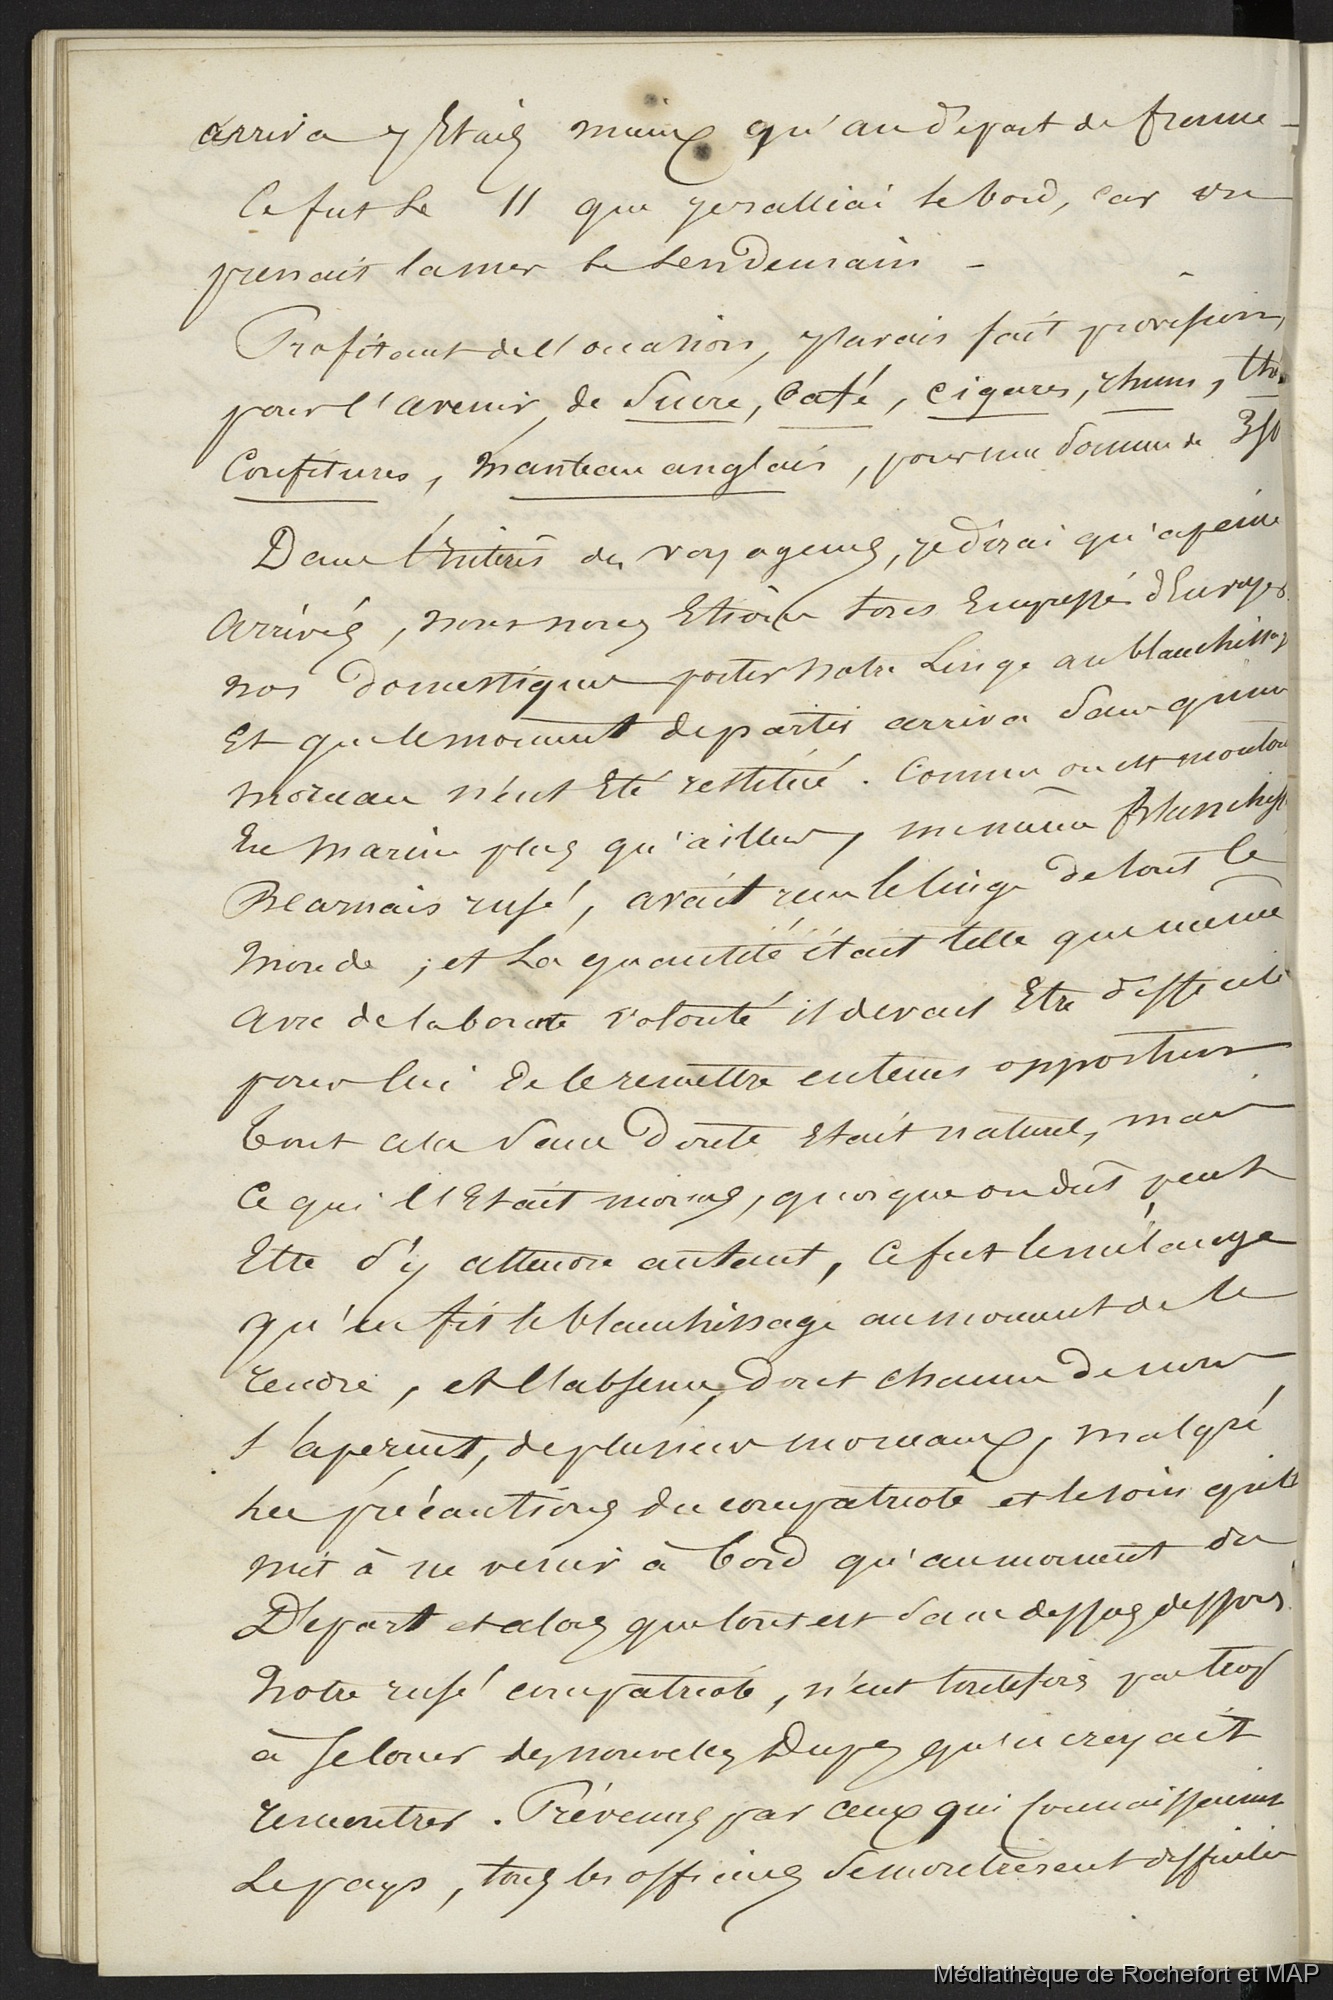 arriva j'Etais mieux qu'au départ de france -
Ce fut le 11 que je ralliai le bord, car on
prenait la mer le lendemain -
Profitant de l'occasion, j'avais fait provision,
pour l'avenir, de Sucre, Café, cigares, rhum, thé
Confitures, Manteau anglais, pour une somme de 350
Dans l'Intérêt des voyageurs, je dirai qu'a peine
Arrivés, nous nous Etions tous Empressés d'Envoyer
nos domestiques porter notre Linge au blanchissage
Et que le moment de partir arriva sans qu'un
morceau n'eut Eté restitué. Comme on est mouton
En Marine plus qu'ailleurs, un même Blanchiss
Béarnais rusé, avait reçu le linge de tout le
Monde ; et La quantité était telle que même
avec de la bonne volonté il devait Etre difficile
pour lui de le remettre en tems opportun
Tout cela sans doute Etait naturel, mais
Ce qui l'Etait moins, quoique on dut peut
Etre s'y attendre autant, Ce fut le mélange
qu'en fit le blanchissage au moment de le
rendre, et l'absence, dont chacun de nous
s'aperçut, de plusieurs morceaux, malgré
Les précautions du compatriote et le soin qu'il
mit à ne venir à bord qu'au moment du
Départ et alors que tout est sans dessus dessous.
Notre rusé compatriote, n'eut toutefois pas trop
à se louer des nouvelles Dupes qu'il croyait
rencontrer. Prévenus par ceux qui connaissaient
Le pays, tous les officiers se montrèrent difficiles
Médiathèque de Rochefort et MAP